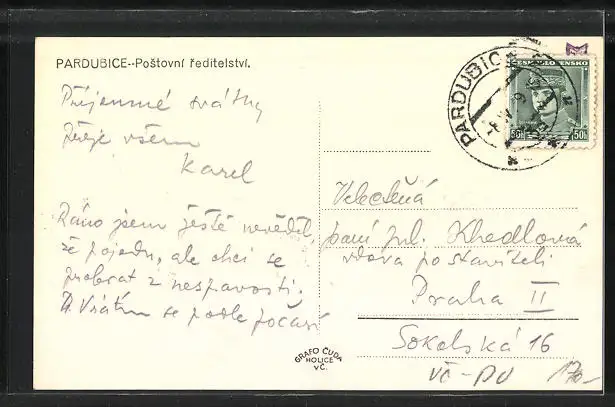 PARDUBICE--Poštovní ředitelství.
Příjemné svátky
přeje všem
Karel
Ráno jsem ještě nevěděl,
že pojedu, ale chci se
probrat z nespavosti.
Vrátím se podle počasí
PARDUBICE
ČESKOSLOVENSKO
50h 50h
Velectěná
paní Khedlová
vdova po staviteli
Praha II
Sokolská 16
GRAFO ČUDA
HOLICE
VČ.
VČ-PU 170-